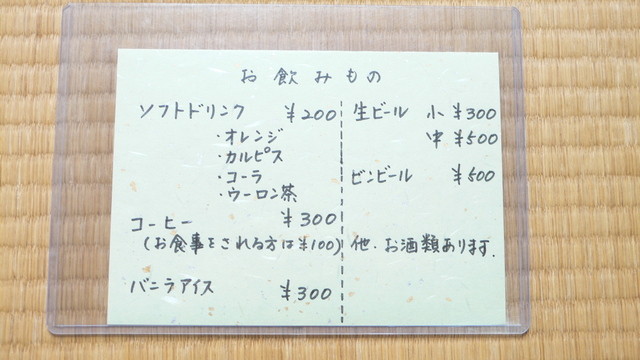 お飲みもの
ソフトドリンク ¥200
・オレンジ
・カルピス
・コーラ
・ウーロン茶
コーヒー ¥300
(お食事をされる方は¥100)
バニラアイス ¥300
生ビール 小 ¥300
中 ¥500
ビンビール ¥500
他、お酒類あります.